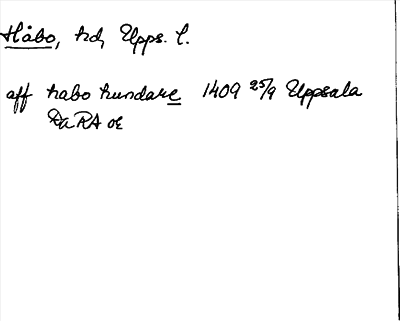 Håbo, hd, Upps. l.
aff habo hundare 1409 25/9 Uppsala
DaRA or